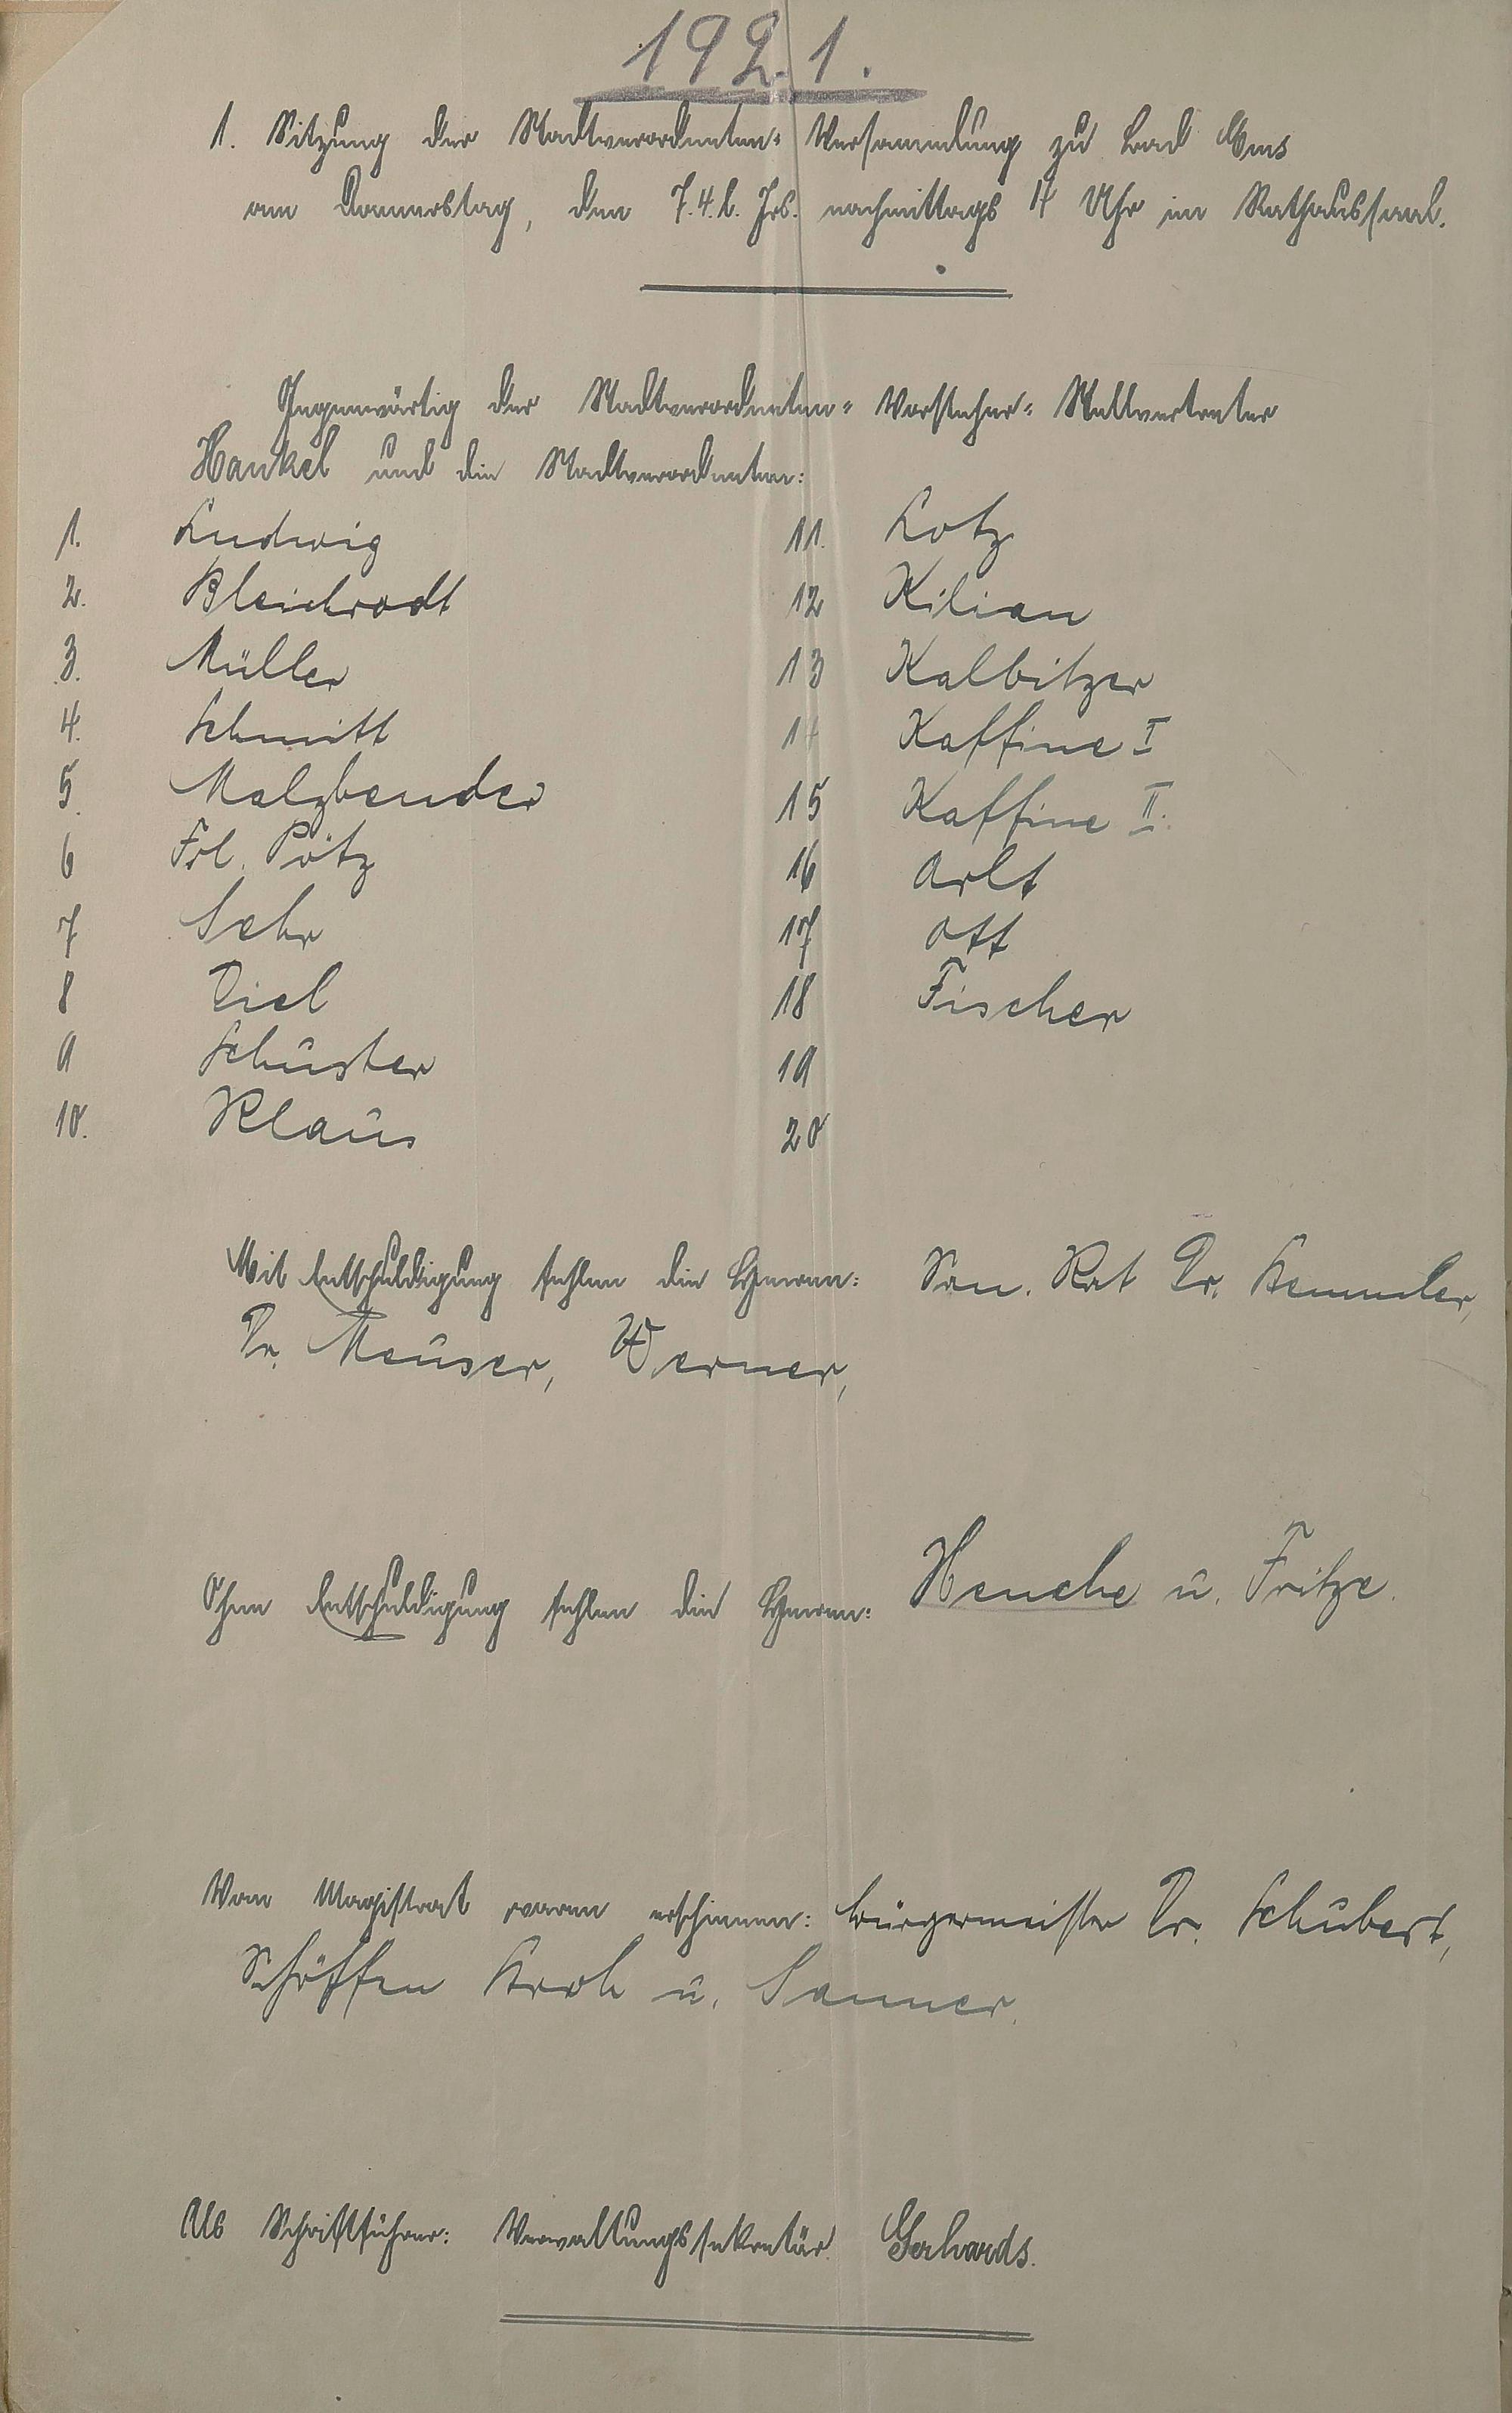 1921.
1. Sitzung der Stadtverordneten=Versammlung zu Bad Ems
am Donnerstag, den 7.4. l. Jrs. nachmittags 4 Uhr im Rathaussaal.
Gegenwärtig der Stadtverordneten=Vorsteher=Stellvertreter
Hankel und die Stadtverordneten:
1. Ludwig
2. Bleichrodt
3. Müller
4. Schmitt
5. Malzbender
6 Frl. Pötz
7 Sehr
8 Diel
9 Schuster
10. Klaus
11. Lotz
12 Kilian
13 Kalbitzer
14 Kaffine I
15 Kaffine II.
16 Arlt
17 Ott
18 Fischer
19
20
Mit Entschuldigung fehlen die Herren: San. Rat Dr. Stemmler,
Dr. Meuser, Werner,
Ohne Entschuldigung fehlen die Herren: Henche u. Fritze.
Vom Magistrat waren erschienen: Bürgermeister Dr. Schubert,
Schöffen Stroh u. Sanner.
Als Schriftführer: Verwaltungssekretär Gerhards.